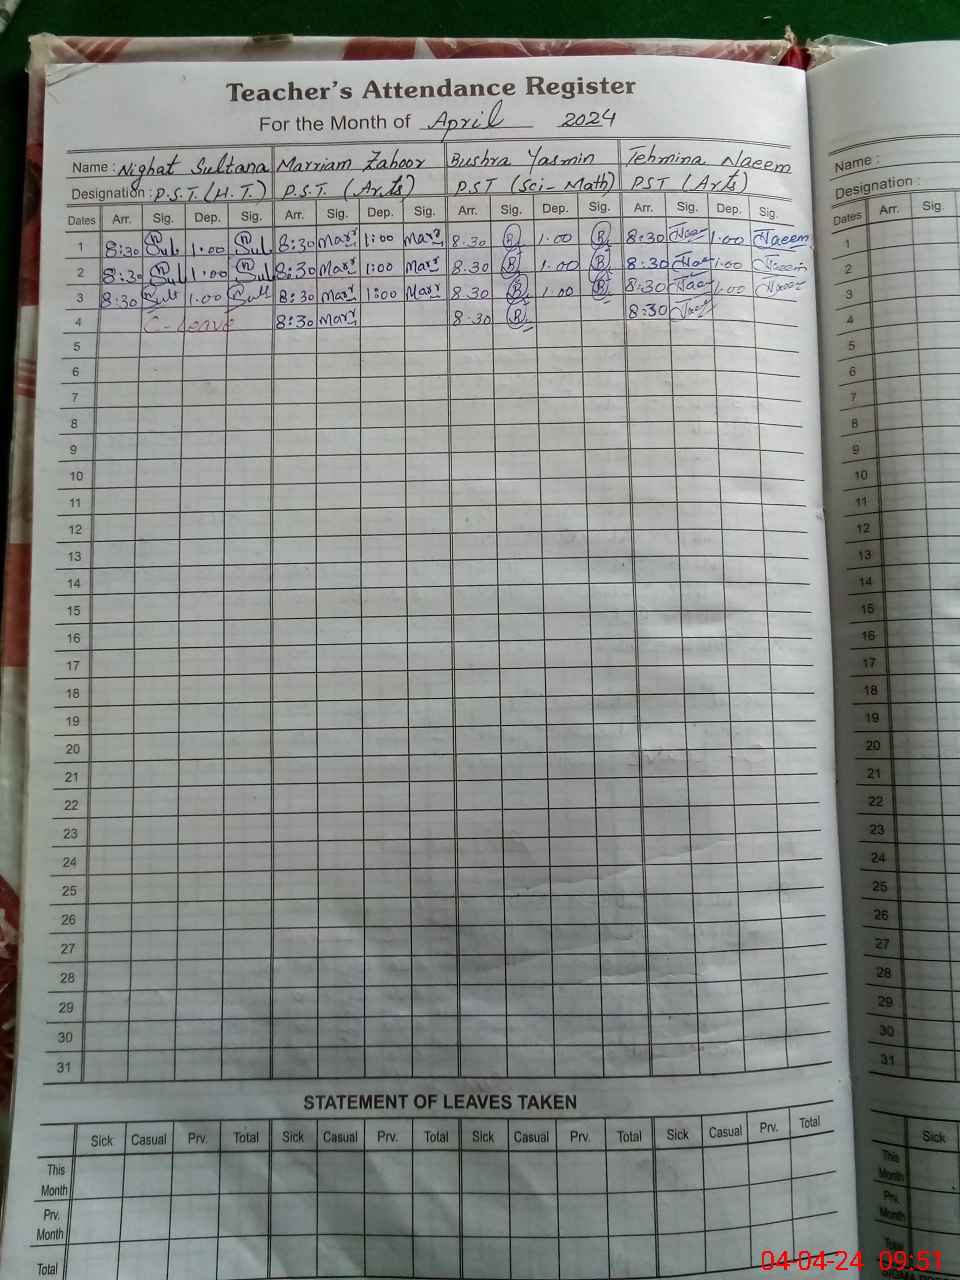 Teacher's Attendance Register
For the Month of April 2024
Name : Nighat Sultana Marriam Zahoor Bushra Yasmin Tehmina Naeem
Designation : P.S.T. (H.T.) P.S.T. (Arts) P.S.T (Sci-Math) PST (Arts)
Dates Arr. Sig. Dep. Sig. Arr. Sig. Dep. Sig. Arr. Sig. Dep. Sig. Arr. Sig. Dep. Sig.
1 8:30 Sul 1:00 Sul 8:30 Marr 1:00 Marr 8:30 B 1:00 B 8:30 Naee 1:00 Naeem
2 8:30 Sul 1:00 Sul 8:30 Marr 1:00 Marr 8:30 B 1:00 B 8:30 Naee 1:00 Naeem
3 8:30 Sult 1:00 Sult 8:30 Marr 1:00 Marr 8:30 B 1:00 B 8:30 Naee 1:00 Naeem
4 C-Leave 8:30 Marr 8:30 B 8:30 Naee
5
6
7
8
9
10
11
12
13
14
15
16
17
18
19
20
21
22
23
24
25
26
27
28
29
30
31
STATEMENT OF LEAVES TAKEN
Sick Casual Prv. Total Sick Casual Prv. Total Sick Casual Prv. Total Sick Casual Prv. Total
This
Month
Prv.
Month
Total
Name :
Designation :
Dates Arr. Sig.
1
2
3
4
5
6
7
8
9
10
11
12
13
14
15
16
17
18
19
20
21
22
23
24
25
26
27
28
29
30
31
Sick
This
Month
Prv.
Month
Total
04-04-24 09:51